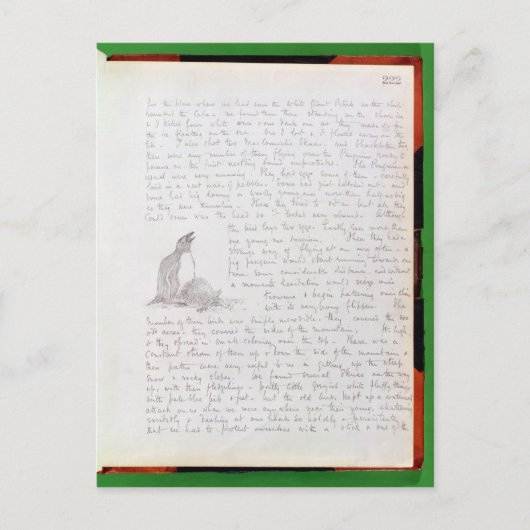 222
for the place where we had seen the white Giant Petrels as the ship
rounded the Cape. We found them there standing on the shore ice
& I killed four white ones & one dark one as they made off for
the ice floating on the sea. One I lost as it floated away on the
I also shot two MacCormick's Skuas and Shackleton two
there were any number of them flying over the Penguins ready to
pounce on the first nestling found unprotected. The Penguins as
usual were very amusing. They had eggs some of them carefully
laid in a nest made of pebbles. Some had just hatched out and
some had big downy or woolly young ones more than half as big
as they were themselves. These they tried to sit on but all they
could cover was the head so it looked very absurd. Although
the bird lays two eggs hardly ever more than
one young one survives. Then they had a
strange way of flying at one, very often a
big penguin would start running towards one
from some considerable distance, and without
a moment's hesitation would seize one's
trousers & begin pattering one's shin
with its very bony flipper. The
number of these birds was simply incredible. They covered the
acres. They covered the sides of the mountain, ft high
& they spread in small colonies over the top. There was a
constant stream of them up & down the side of the mountain &
their paths were very useful to us in getting up the steep
snow & rocky slopes. We found several Skuas on the way
up, with their fledglings pretty little greyish white fluffy things
with pale blue bills & feet but the old birds kept up a continual
attack on us when we were anywhere near their young, chattering
excitedly & dashing at our heads so boldly & persistently
that we had to protect ourselves with a stick & one of the